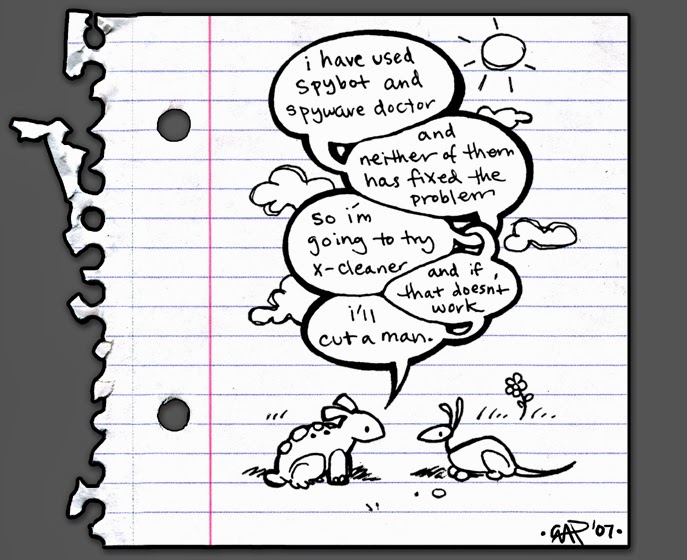 i have used
spybot and
spyware doctor
and
neither of them
has fixed the
problem
so i'm
going to try
x-cleaner
and if
that doesn't
work
i'll
cut a man.
GAP '07.